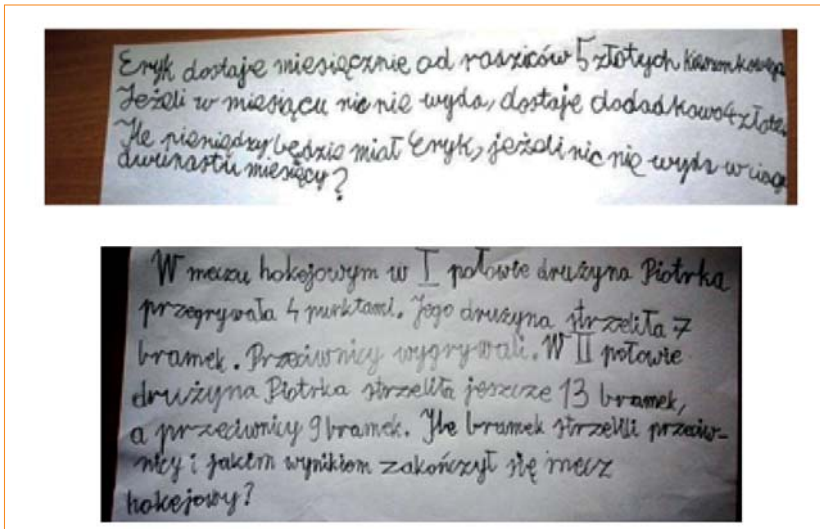 Eryk dostaje miesięcznie od rodziców 5 złotych kieszonkowego
Jeżeli w miesiącu nic nie wyda, dostaje dodadkowo 4 złote.
Ile pieniędzy będzie miał Eryk, jeżeli nic nie wyda w ciągu
dwunastu miesięcy?
W meczu hokejowym w I połowie drużyna Piotrka
przegrywała 4 punktami. Jego drużyna strzeliła 7
bramek. Przeciwnicy wygrywali. W II połowie
drużyna Piotrka strzeliła jeszcze 13 bramek,
a przeciwnicy 9 bramek. Ile bramek strzelili przeciw-
nicy i jakim wynikiem zakończył się mecz
hokejowy?